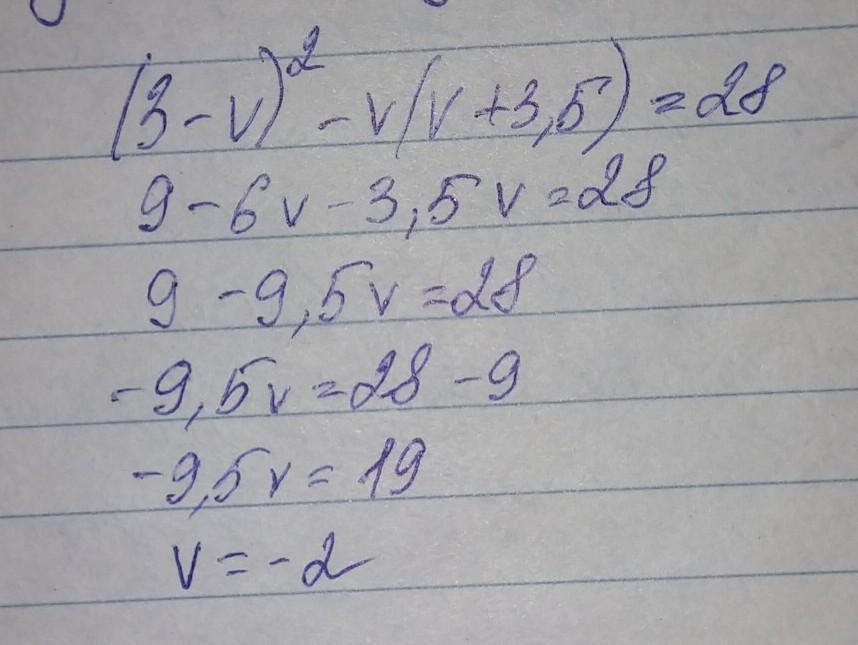 (3-v)²-v(v+3,5)=28
9-6v-3,5v=28
9-9,5v=28
-9,5v=28-9
-9,5v=19
v=-2